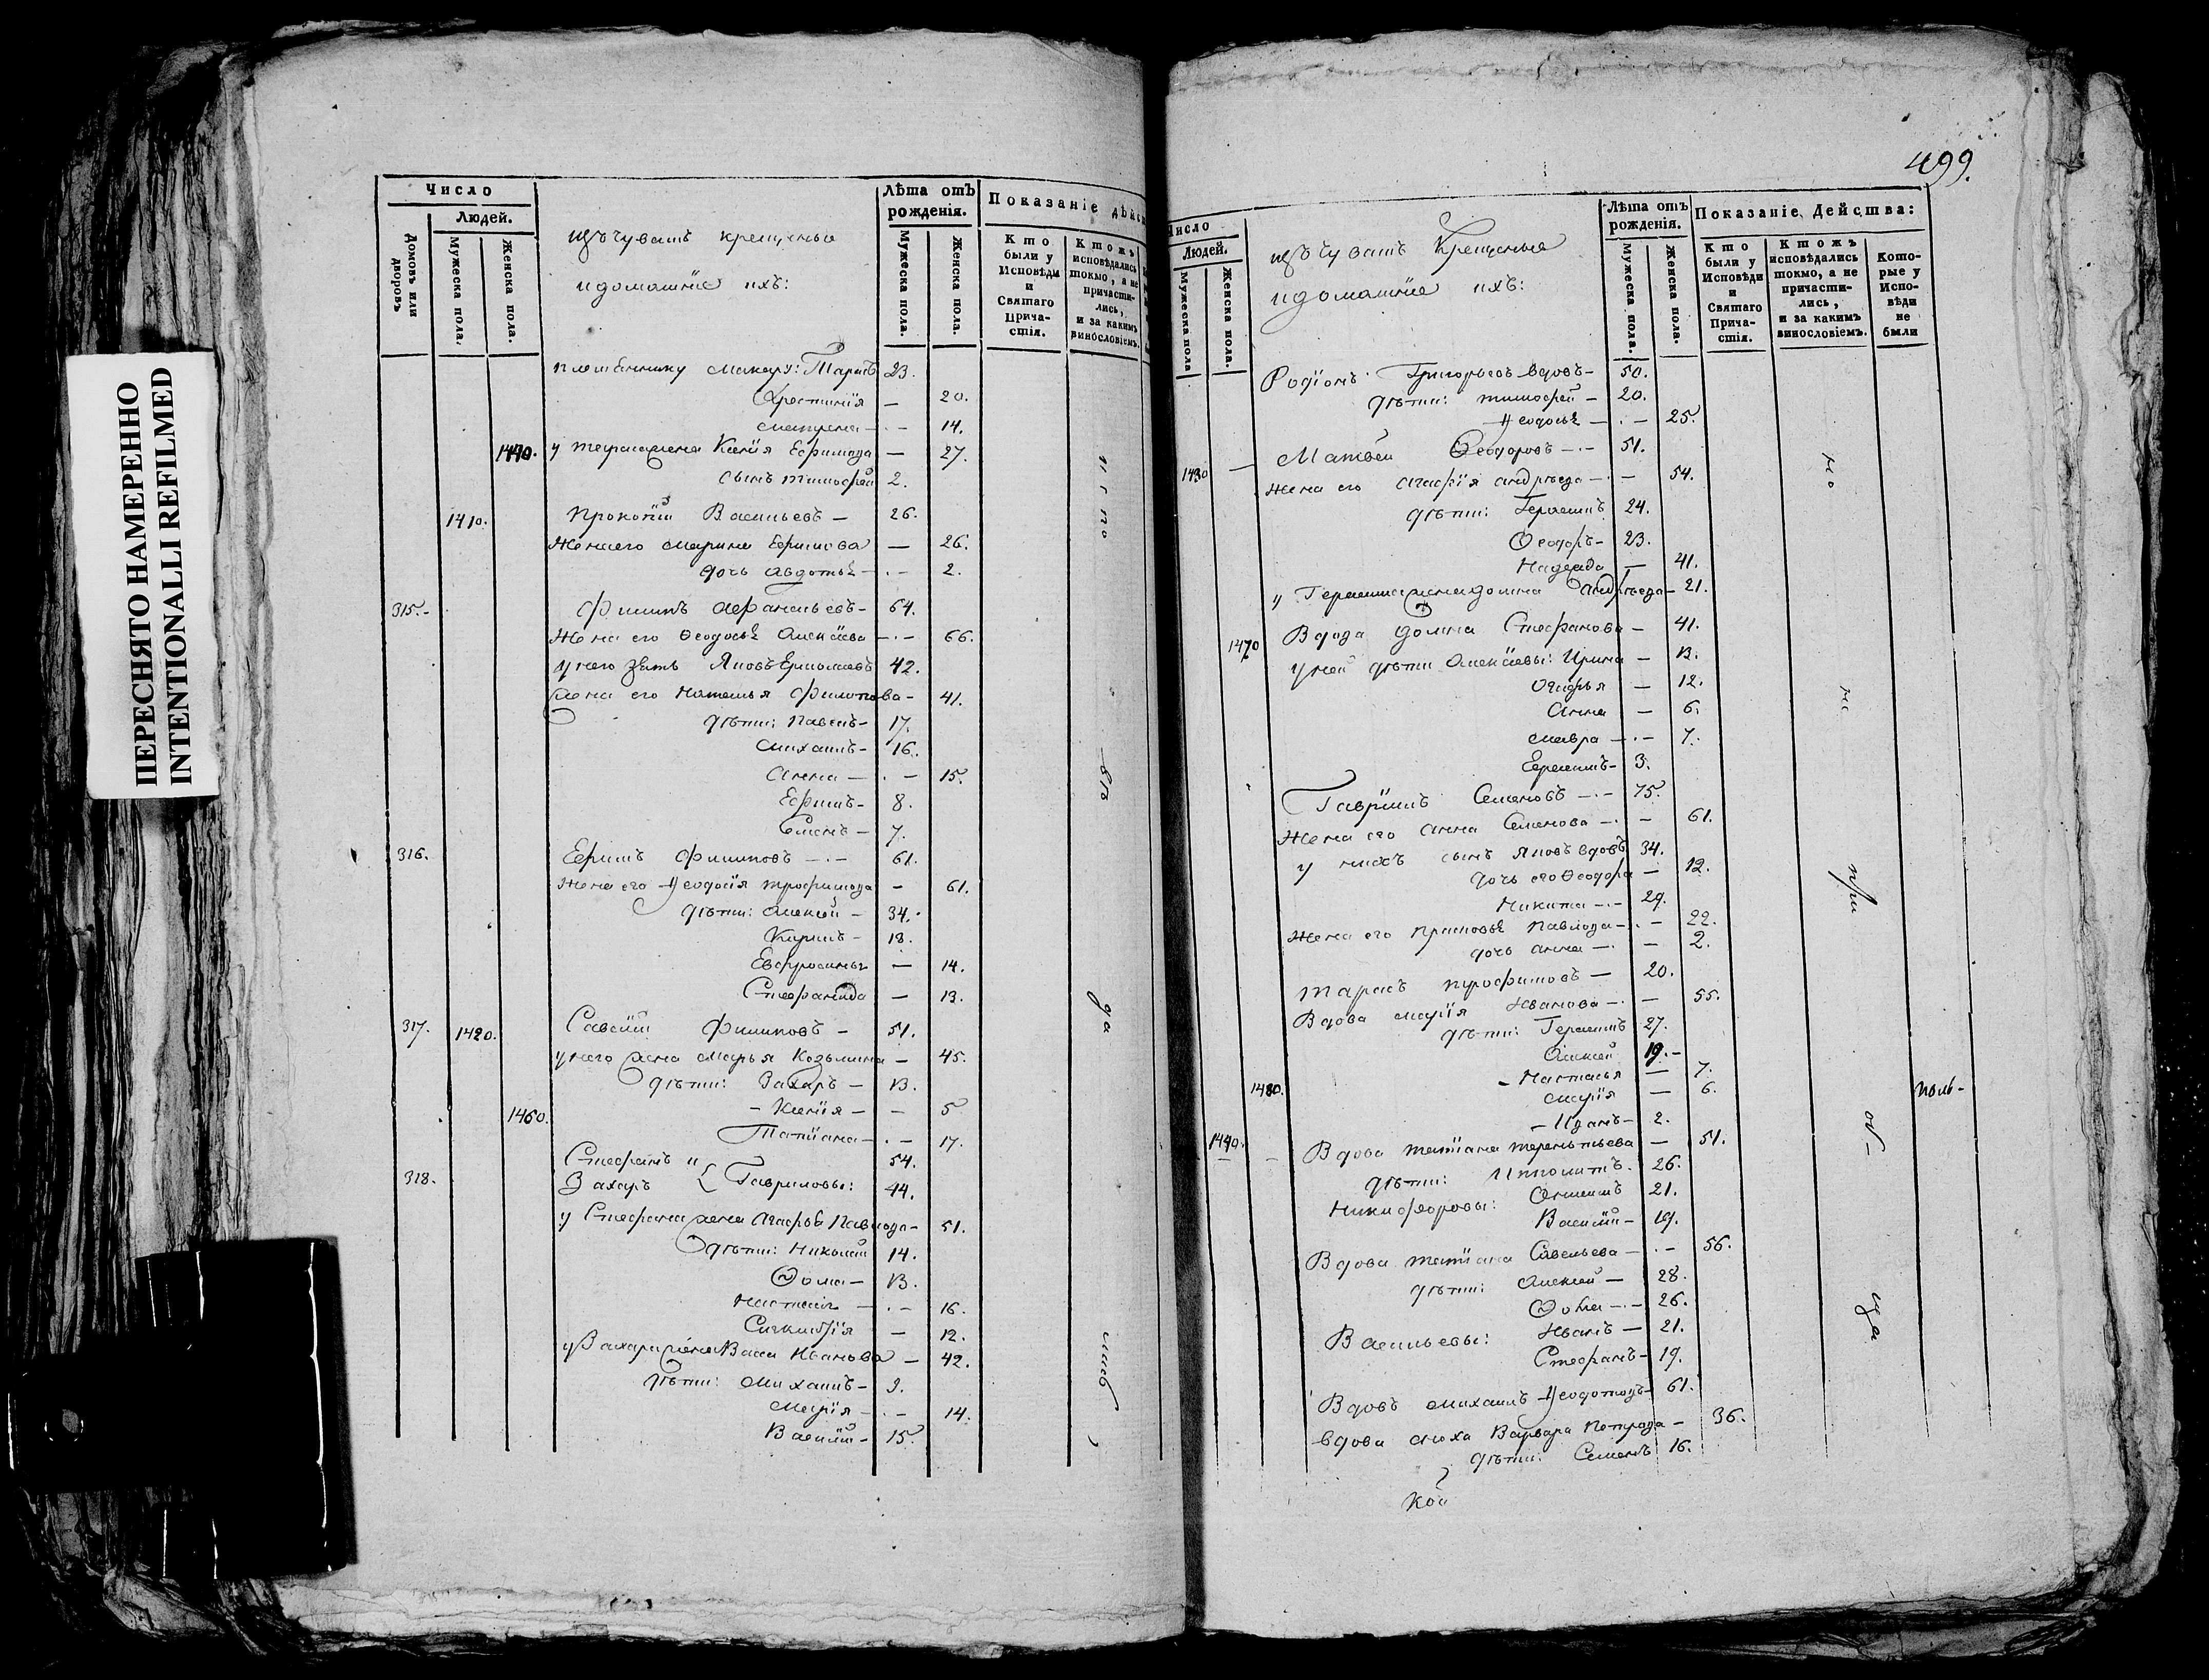 ПЕРЕСНЯТО НАМЕРЕННО
INTENTIONALLI REFILMED
Число
Людей.
Домовъ или дворовъ
Мужеска пола.
Женска пола.
изъ чувашъ крещеные
и домашніе ихъ:
Лѣта отъ рожденія.
Мужеска пола.
Женска пола.
Показаніе дѣйс
Кто были у Исповѣди и Святаго Причастія.
Ктожъ исповѣдались токмо, а не причастились, и за какимъ винословіемъ.
23.
Христинія — 20.
14.
1440. Ефимова — 27.
сынъ Тимофей 2.
1410. Прокопій Васильевъ — 26.
Жена его Марина Ефимова — 26.
дочь Авдотья — 2.
315. Филипъ Афанасьевъ — 64.
Жена его Ѳеодосья Алексіева — 66.
у него зять Яковъ Ермолаевъ 42.
Жена его Наталья Филипова — 41.
дѣти: Павелъ — 17.
Михаилъ — 16.
Анна — 15.
Ефимъ — 8.
Семенъ — 7.
316. Ефимъ Филиповъ — 61.
Жена его Ѳеодосія Трофимова — 61.
дѣти: Алексей — 34.
Кирилъ — 18.
Евфросинья — 14.
Стефанида — 13.
317. 1420. Савелій Филиповъ — 51.
у него жена Марья Козьмина — 45.
дѣти: Захаръ — 13.
1460. — Ксенія — 5
Татіана — 17.
Стефанъ и 54.
318. Захаръ Гавриловы: 44.
у Стефана жена Агафья Павлова — 51.
дѣти: Николай 14.
Ѳома — 13.
Настасія — 16.
12.
у Захара жена Васса Иванова — 42.
дѣти: Михаилъ — 9.
Марія — 14.
Василій — 15.
499.
Число
Людей.
Мужеска пола
Женска пола.
изъ чувашъ Крещеные
и домашніе ихъ:
Лѣта отъ рожденія.
Мужеска пола.
Женска пола.
Показаніе Действа:
Кто были у Исповѣди и Святаго Причастія.
Ктожъ исповѣдались токмо, а не причастились, и за какимъ винословіемъ.
Которые у Исповѣди не были
Родіонъ Григорьевъ вдовъ — 50.
дѣти: Тимофей — 20.
Ѳеодосья — 25.
Матвей Ѳеодоровъ — 51.
1430 Жена его Агафія Андрѣева — 54.
дѣти: Герасимъ 24.
Ѳеодоръ — 23.
Надежда — 41.
у Герасима жена Домна Андрѣева — 21.
1470 Вдова Домна Стефанова — 41.
у ней дѣти Алексіевы: Ирина — 13.
12.
Анна — 6.
Мавра — 7.
3.
Гавріилъ Семеновъ — 75.
Жена его Анна Семенова — 61.
у нихъ сынъ Яковъ вдовъ 34.
дочь его Ѳеодора — 12.
Никита — 29.
Жена его Прасковья Павлова — 22.
дочь Анна — 2.
Тарасъ Трофимовъ — 20.
Вдова Марія Иванова — 55.
дѣти: Герасимъ 27.
Алексей 19. —
— Настасья — 7.
1480. Марія — 6.
— Иванъ — 2.
1440. Вдова Татіана Терентьева — 51.
дѣти: Ипполитъ. 26.
Никифоровы: 21.
Василій — 19.
Вдова Татіана Савельева — 56.
дѣти: Алексей — 28.
Ѳома — 26.
Васильевы: Иванъ — 21.
Стефанъ — 19.
Вдовъ Михаилъ Ѳеодотовъ — 61.
вдова сноха Варвара Петрова — 36.
дѣти: Семенъ 16.